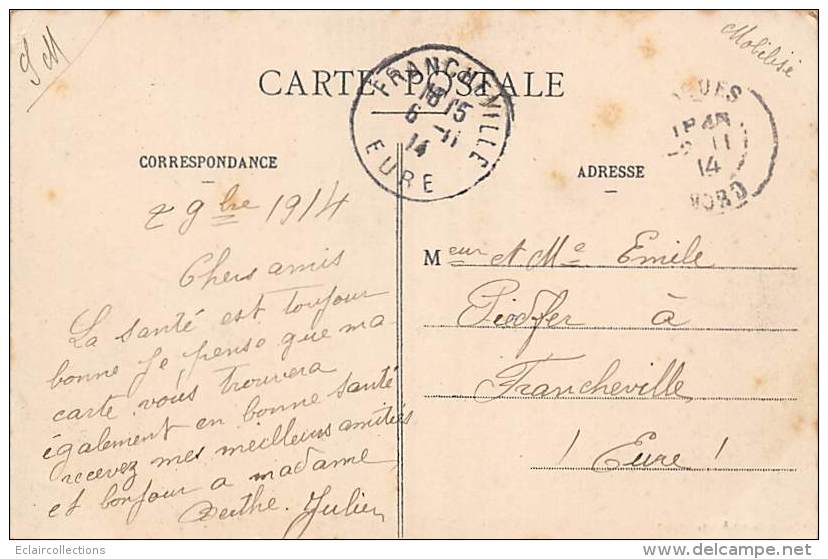 S M
Mobilisé
CARTE POSTALE
FRANCHEVILLE
18 15
6 -11
14
EURE
QUES
-2 11
14
NORD
CORRESPONDANCE
ADRESSE
2 9bre 1914
Chers amis
La santé est toujour
bonne Je pense que ma
carte vous trouvera
également en bonne santé
recevez mes meilleurs amitiés
et bonjour a madame
Berthe. Julien
Meur et Me Emile
Piedfer à
Francheville
(Eure)
Eclaircollections
www.delcampe.net